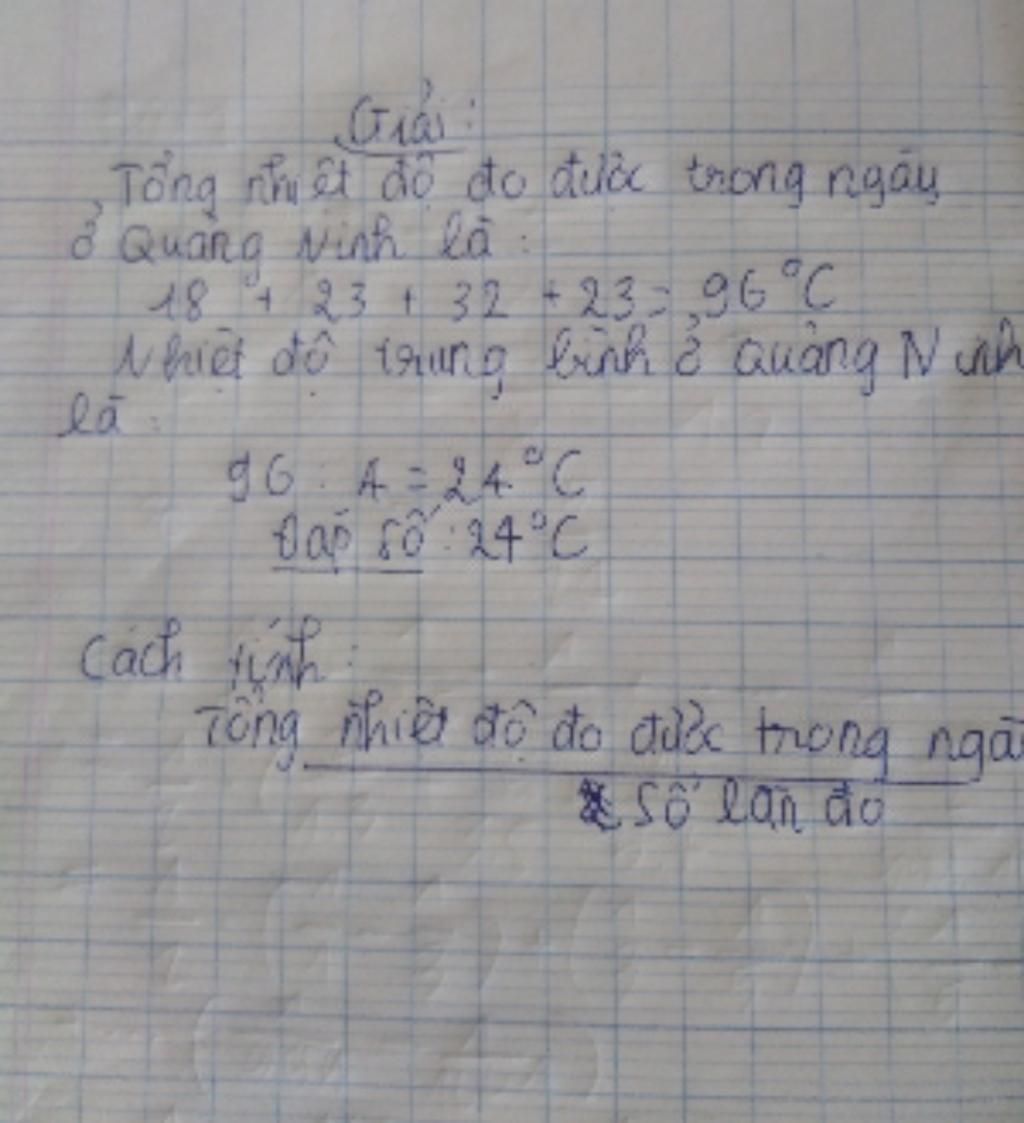 Giải:
Tổng nhiệt độ đo được trong ngày
ở Quảng Ninh là:
18 + 23 + 32 + 23 = 96°C
Nhiệt độ trung bình ở Quảng Ninh
là:
96 : 4 = 24°C
Đáp số: 24°C
Cách tính:
Tổng nhiệt độ đo được trong ngà
Số lần đo